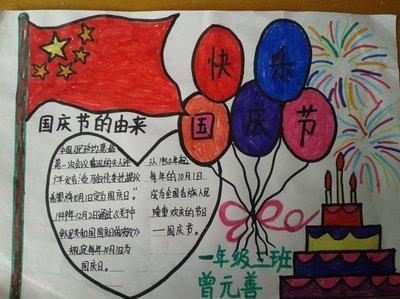 快 乐
国 庆 节
国庆节的由来
第一次会议鲁迅的夫人许
希望将10月1日定为国庆日。"
1949年12月2日通过《关于
规定每年10月1日为
国庆日。
从1950年起,
每年的10月1日
成为全国各族人民
隆重欢庆的节日
——国庆节。
一年级三班
曾元善